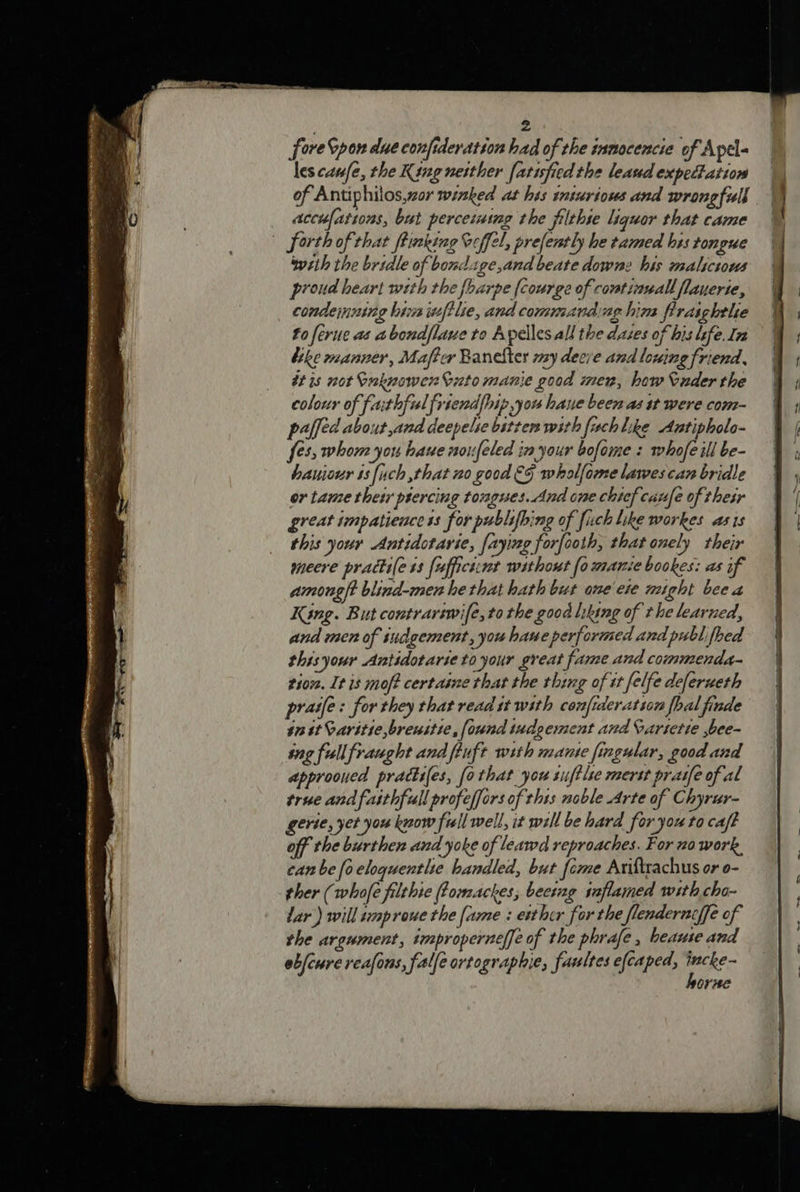 2
fore vpon due consideration had of the innocencie of Apel-
les cause, the King neither satisfied the leaud expectation
of Antiphilos, nor winked at his iniurious and wrongfull
accusations, but perceiuing the filthie liquor that came
forth of that stinking vessel, presently he tamed his tongue
with the bridle of bondage, and beate downe his malicious
proud heart with the sharpe scourge of continuall slauerie,
condemning him iustlie, and commanding him straightlie
to serue as a bondslaue to Apelles all the daies of his life. In
like manner, Master Banester my deere and louing friend,
it is not vnknowen vnto manie good men, how vnder the
colour of faithful friendship, you haue been as it were com-
passed about, and deepelie bitten with such like Antipholo-
ses, whom you haue nouseled in your bosome : whose ill be-
hauiour is such, that no good & wholsome lawes can bridle
or tame their piercing tongues. And one chief cause of their
great impatience is for publishing of such like workes as is
this your Antidotarie, saying forsooth, that onely their
meere practise is sufficient without so manie bookes: as if
amongst blind-men he that hath but one eie might bee a
King. But contrariwise, to the good liking of the learned,
and men of iudgement, you haue performed and published
this your Antidotarie to your great fame and commenda-
tion. It is most certaine that the thing of it selfe deserueth
praise : for they that read it with consideration shal finde
in it varitie, breuitie, sound iudgement and varietie, bee-
ing full fraught and stuft with manie singular, good and
approoued practises, so that you iustlie merit praise of al
true and faithfull professors of this noble Arte of Chyrur-
gerie, yet you know full well, it will be hard for you to cast
off the burthen and yoke of leawd reproaches. For no work
can be so eloquentlie handled, but some Aristrachus or o-
ther (whose filthie stomackes, beeing inflamed with cho-
lar) will improue the same : either for the slendernesse of
the argument, impropernesse of the phrase, beauie and
obscure reasons, false ortographie, faultes escaped, incke-
horne